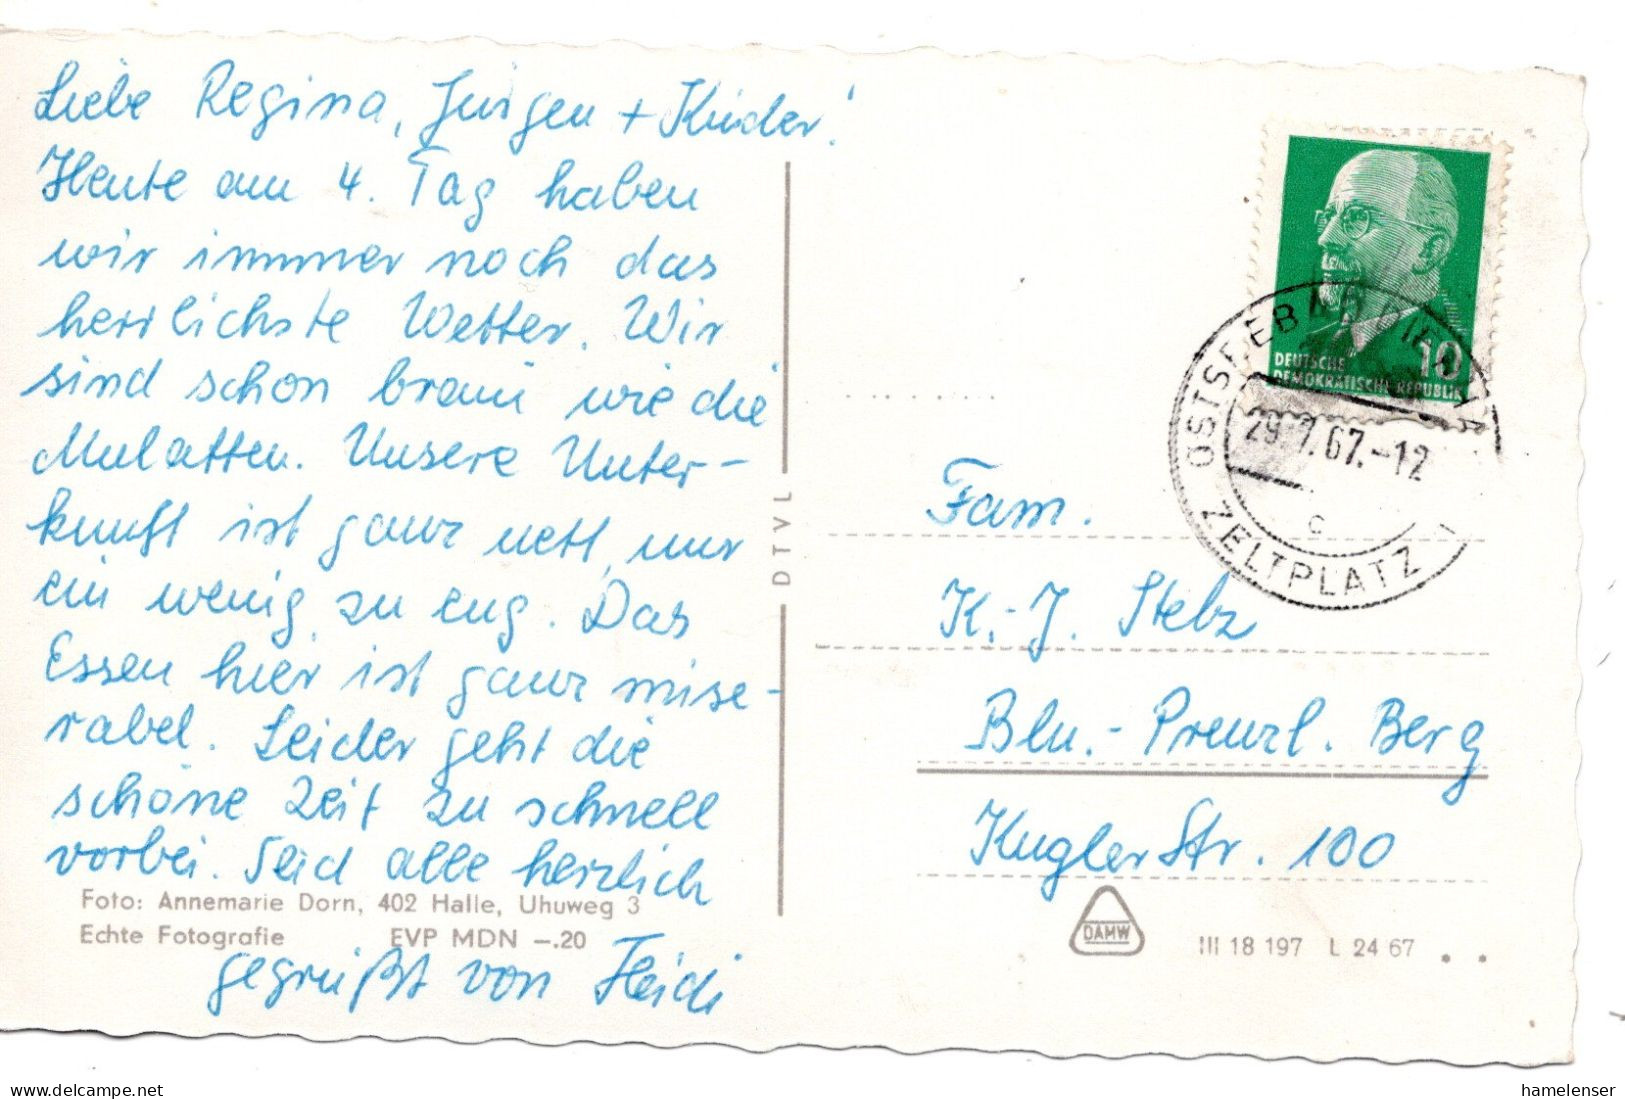 Liebe Regina, Jürgen + Kinder!
Heute am 4. Tag haben
wir immer noch das
herrlichste Wetter. Wir
sind schon braun wie die
Mulatten. Unsere Unter-
kunft ist ganz nett, nur
ein wenig zu eng. Das
Essen hier ist ganz mise-
rabel. Leider geht die
schöne Zeit zu schnell
vorbei. Seid alle herzlich
gegrüßt von Heidi
Foto: Annemarie Dorn, 402 Halle, Uhuweg 3
Echte Fotografie EVP MDN –.20
DTVL
DEUTSCHE
DEMOKRATISCHE REPUBLIK
10
OSTSEEBAD
29.7.67.-12
c
ZELTPLATZ 1
Fam.
K.-J. Stelz
Bln.- Prenzl. Berg
Kugler Str. 100
DAMW
III 18 197 L 24 67
hamelenser
delcampe.net